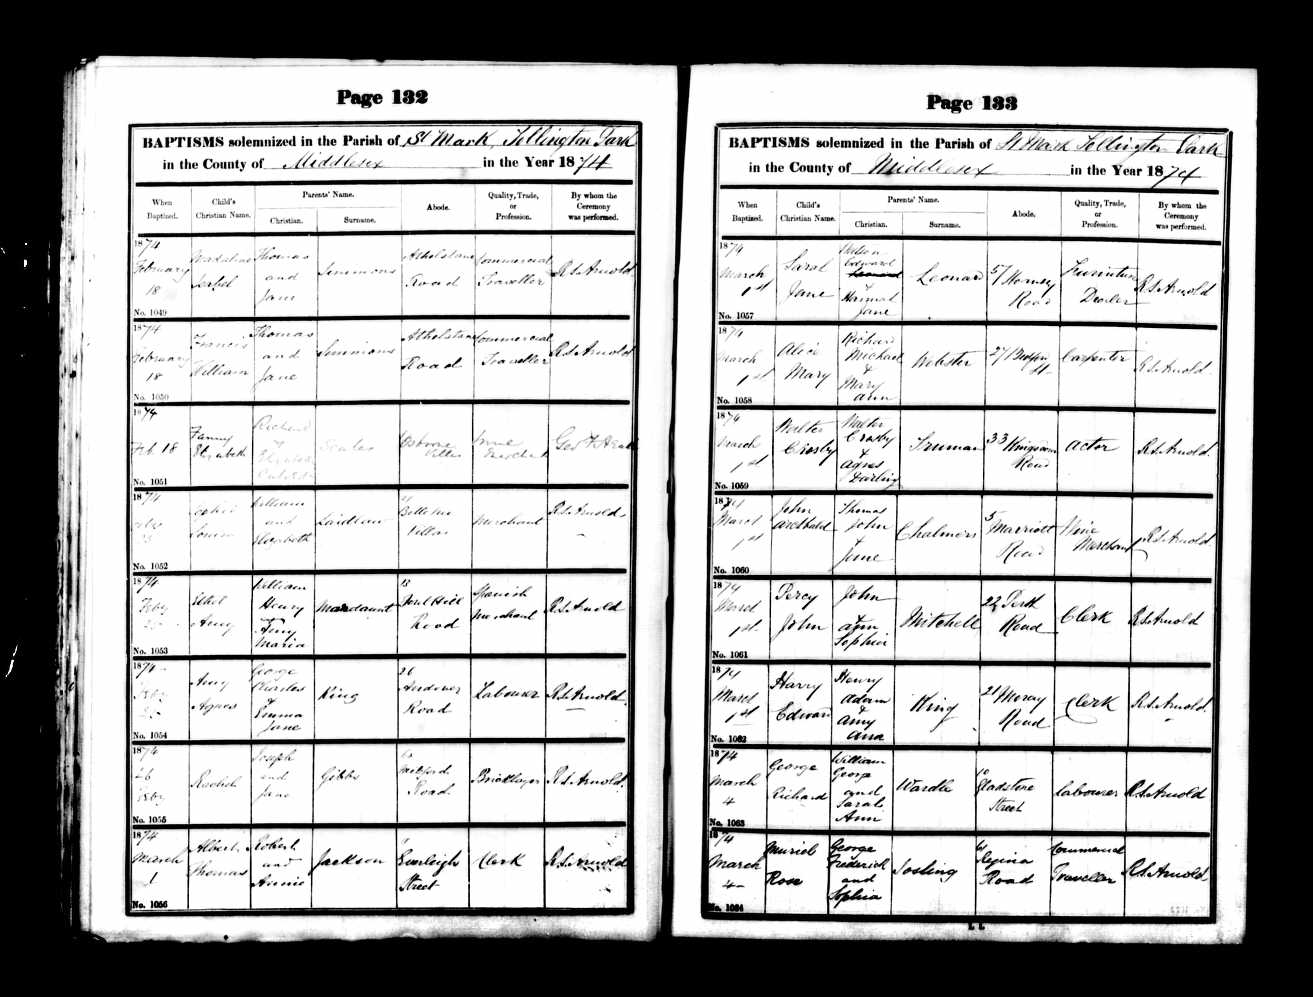 Page 132
BAPTISMS solemnized in the Parish of St Mark, Tollington Park
in the County of Middlesex in the Year 1874
When Baptized.
Child's Christian Name.
Parents' Name.
Christian.
Surname.
Abode.
Quality, Trade, or Profession.
By whom the Ceremony was performed.
1874
February
18
Isabel
Thomas
and
Jane
Simmons
Athelstane
Road
Commercial
Traveller
R.S. Arnold.
No. 1049
1874
February
18
Francis
William
Thomas
and
Jane
Simmons
Athelstane
Road
Commercial
Traveller
R.S. Arnold
No. 1050
1874
Feb 18
Fanny
Elizabeth
Richard
&
Osborne
Villas
No. 1051
1874
Louisa
William
and
Elizabeth
Laidlaw
Villas
Merchant
R.S. Arnold
No. 1052
1874
Feby
25
Ethel
Amy
William
Henry
&
Amy
Maria
Mordaunt
13
Road
Spanish
Merchant
R.S. Arnold
No. 1053
1874
Feby
25
Amy
Agnes
George
Charles
&
Emma
Jane
King
26
Andover
Road
Labourer
R.S. Arnold.
No. 1054
1874
26
Feby
Rachel
Joseph
and
Jane
Gibbs
Milford
Road
Bricklayer
R.S. Arnold.
No. 1055
1874
March
1
Albert
Thomas
Robert
and
Annie
Jackson
Everleigh
Street
Clerk
R.S. Arnold
No. 1056
Page 133
BAPTISMS solemnized in the Parish of St Mark Tollington Park
in the County of Middlesex in the Year 1874
When Baptized.
Child's Christian Name.
Parents' Name.
Christian.
Surname.
Abode.
Quality, Trade, or Profession.
By whom the Ceremony was performed.
1874
March
1st
Sarah
Jane
Edward
&
Hannah
Jane
Leonard
57 Hornsey
Road
Furniture
Dealer
R.S. Arnold
No. 1057
1874
March
1st
Alice
Mary
Richard
Michael
&
Mary
Ann
Webster
27
St
Carpenter
R.S. Arnold.
No. 1058
1874
March
1st
Walter
Crosby
Walter
Crosby
&
Agnes
Darling
Truman
33 Kingsdown
Road
Actor
R.S. Arnold.
No. 1059
1874
March
1st
John
Archibald
Thomas
John
&
Jane
Chalmers
5 Marriott
Road
Wine
Merchant
R.S. Arnold
No. 1060
1874
March
1st.
Percy
John
John
&
Ann
Sophia
Mitchell
22 Perth
Road
Clerk
R.S. Arnold
No. 1061
1874
March
1st
Harry
Edward
Henry
Adam
&
Amy
Ann
King
21 Moray
Road
Clerk
R.S. Arnold.
No. 1062
1874
March
4
George
Richard
William
George
and
Sarah
Ann
Wardle
10
Gladstone
Street
Labourer
R.S. Arnold
No. 1063
1874
March
4
Muriel
Rose
George
Frederick
and
Sophia
Josling
Regina
Road
Commercial
Traveller
R.S. Arnold
No. 1064